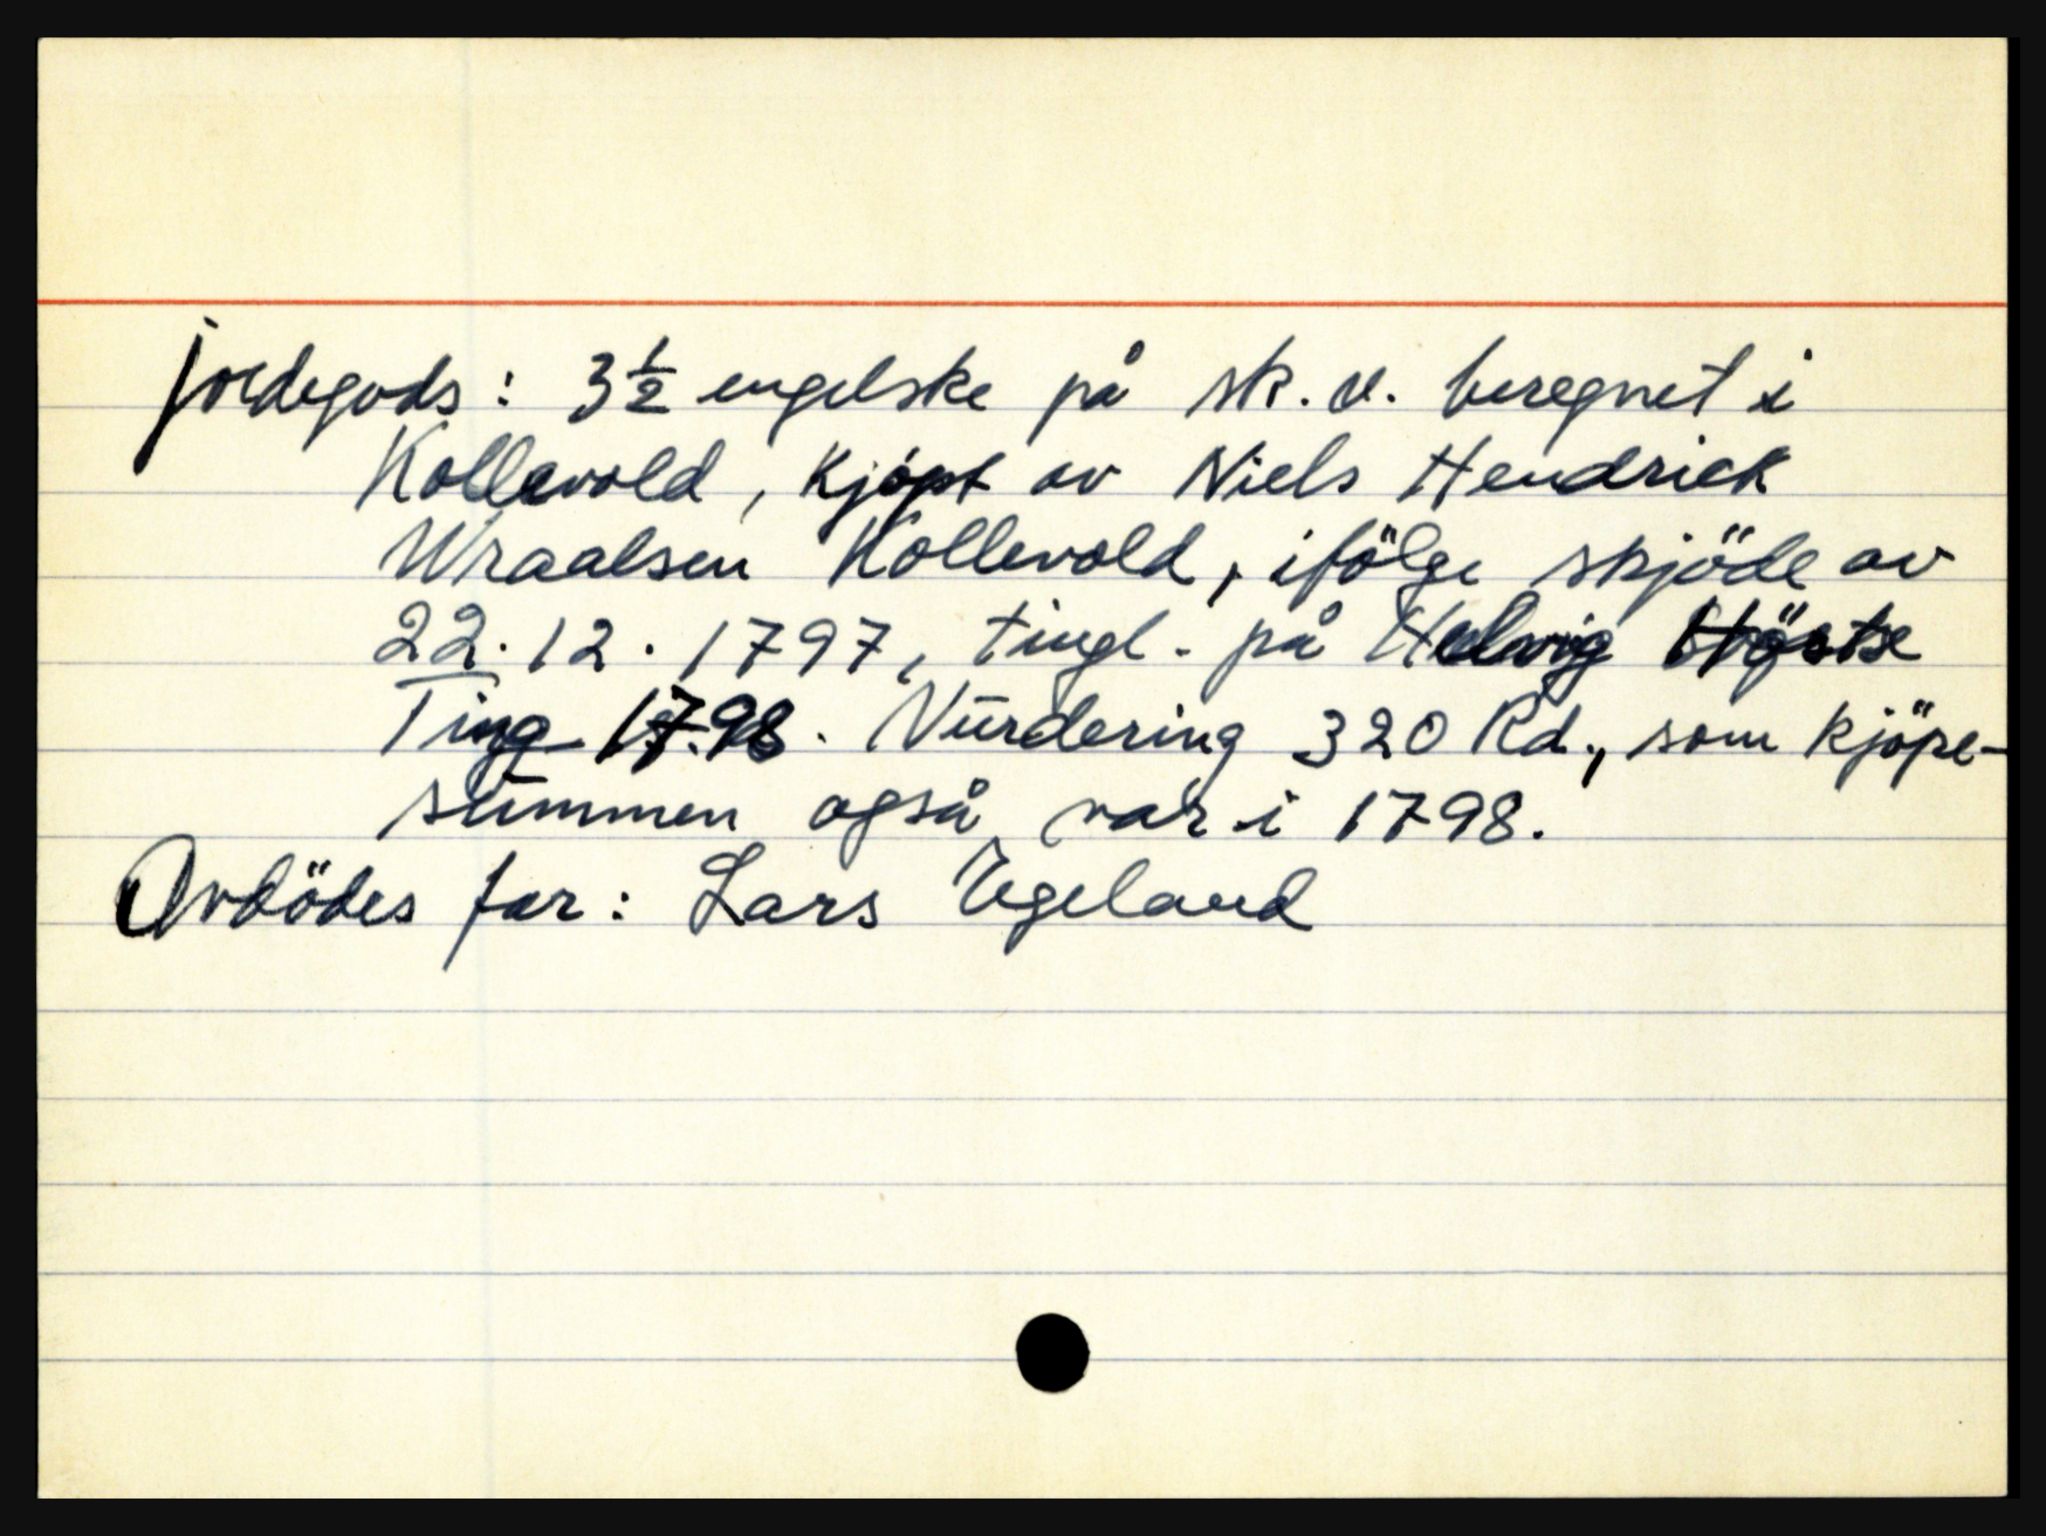 jordegods: 3½ engelske på sk.v. beregnet i
Kollevold, kjöpt av Niels Hendrick
Wraalsen Kollevold, ifölge skjöde av
22.12.1797, tingl. på Helvig Höste
Ting 1798. Vurdering 320 Rd., som kjöpe-
summen også var i 1798.
Avdödes far: Lars Egeland